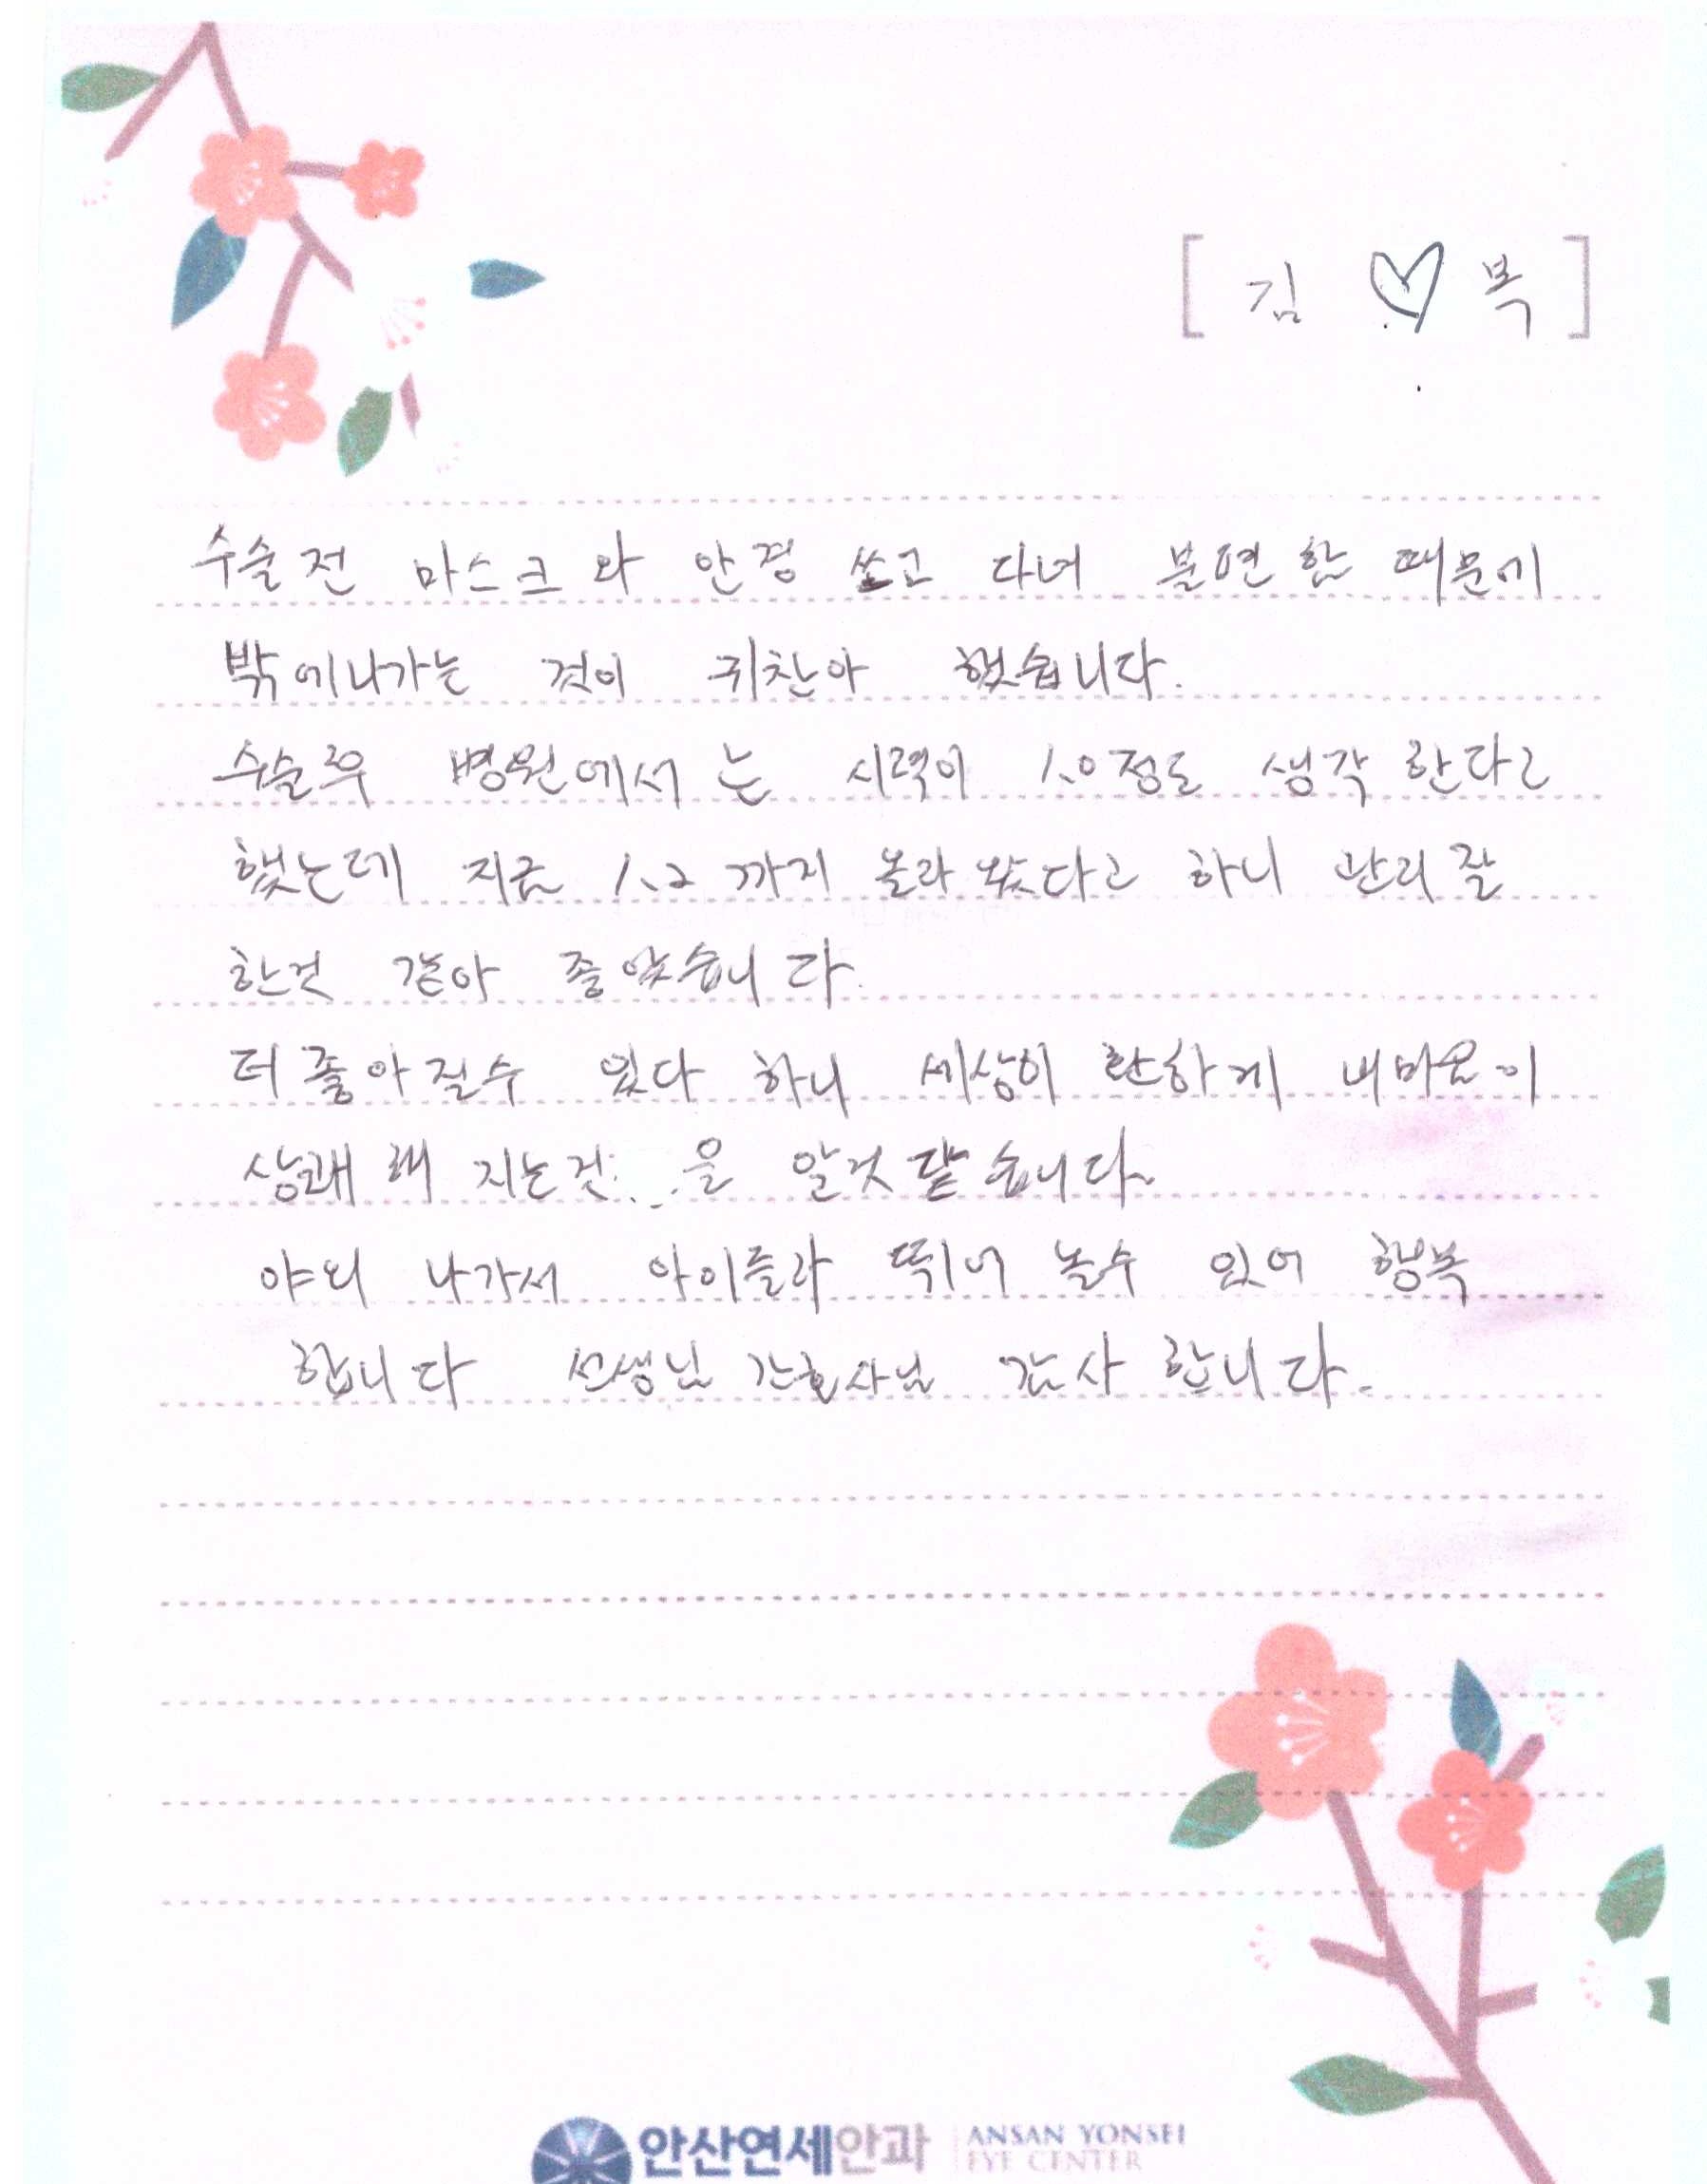 [김 ♡ 복]
수술전 마스크와 안경 쓰고 다녀 불편함 때문에
밖에나가는 것이 귀찬아 했습니다.
수술후 병원에서는 시력이 1.0정도 생각 한다고
했는데 지금 1.2 까지 올라 왔다고 하니 관리잘
한것 같아 좋았습니다.
더 좋아질수 있다 하니 세상이 환하게 내마음이
상쾌 해 지는것 을 알것 같습니다.
야외 나가서 아이들과 뛰어 놀수 있어 행복
합니다 선생님 간호사님 감사 합니다.
안산연세안과 ANSAN YONSEI
EYE CENTER